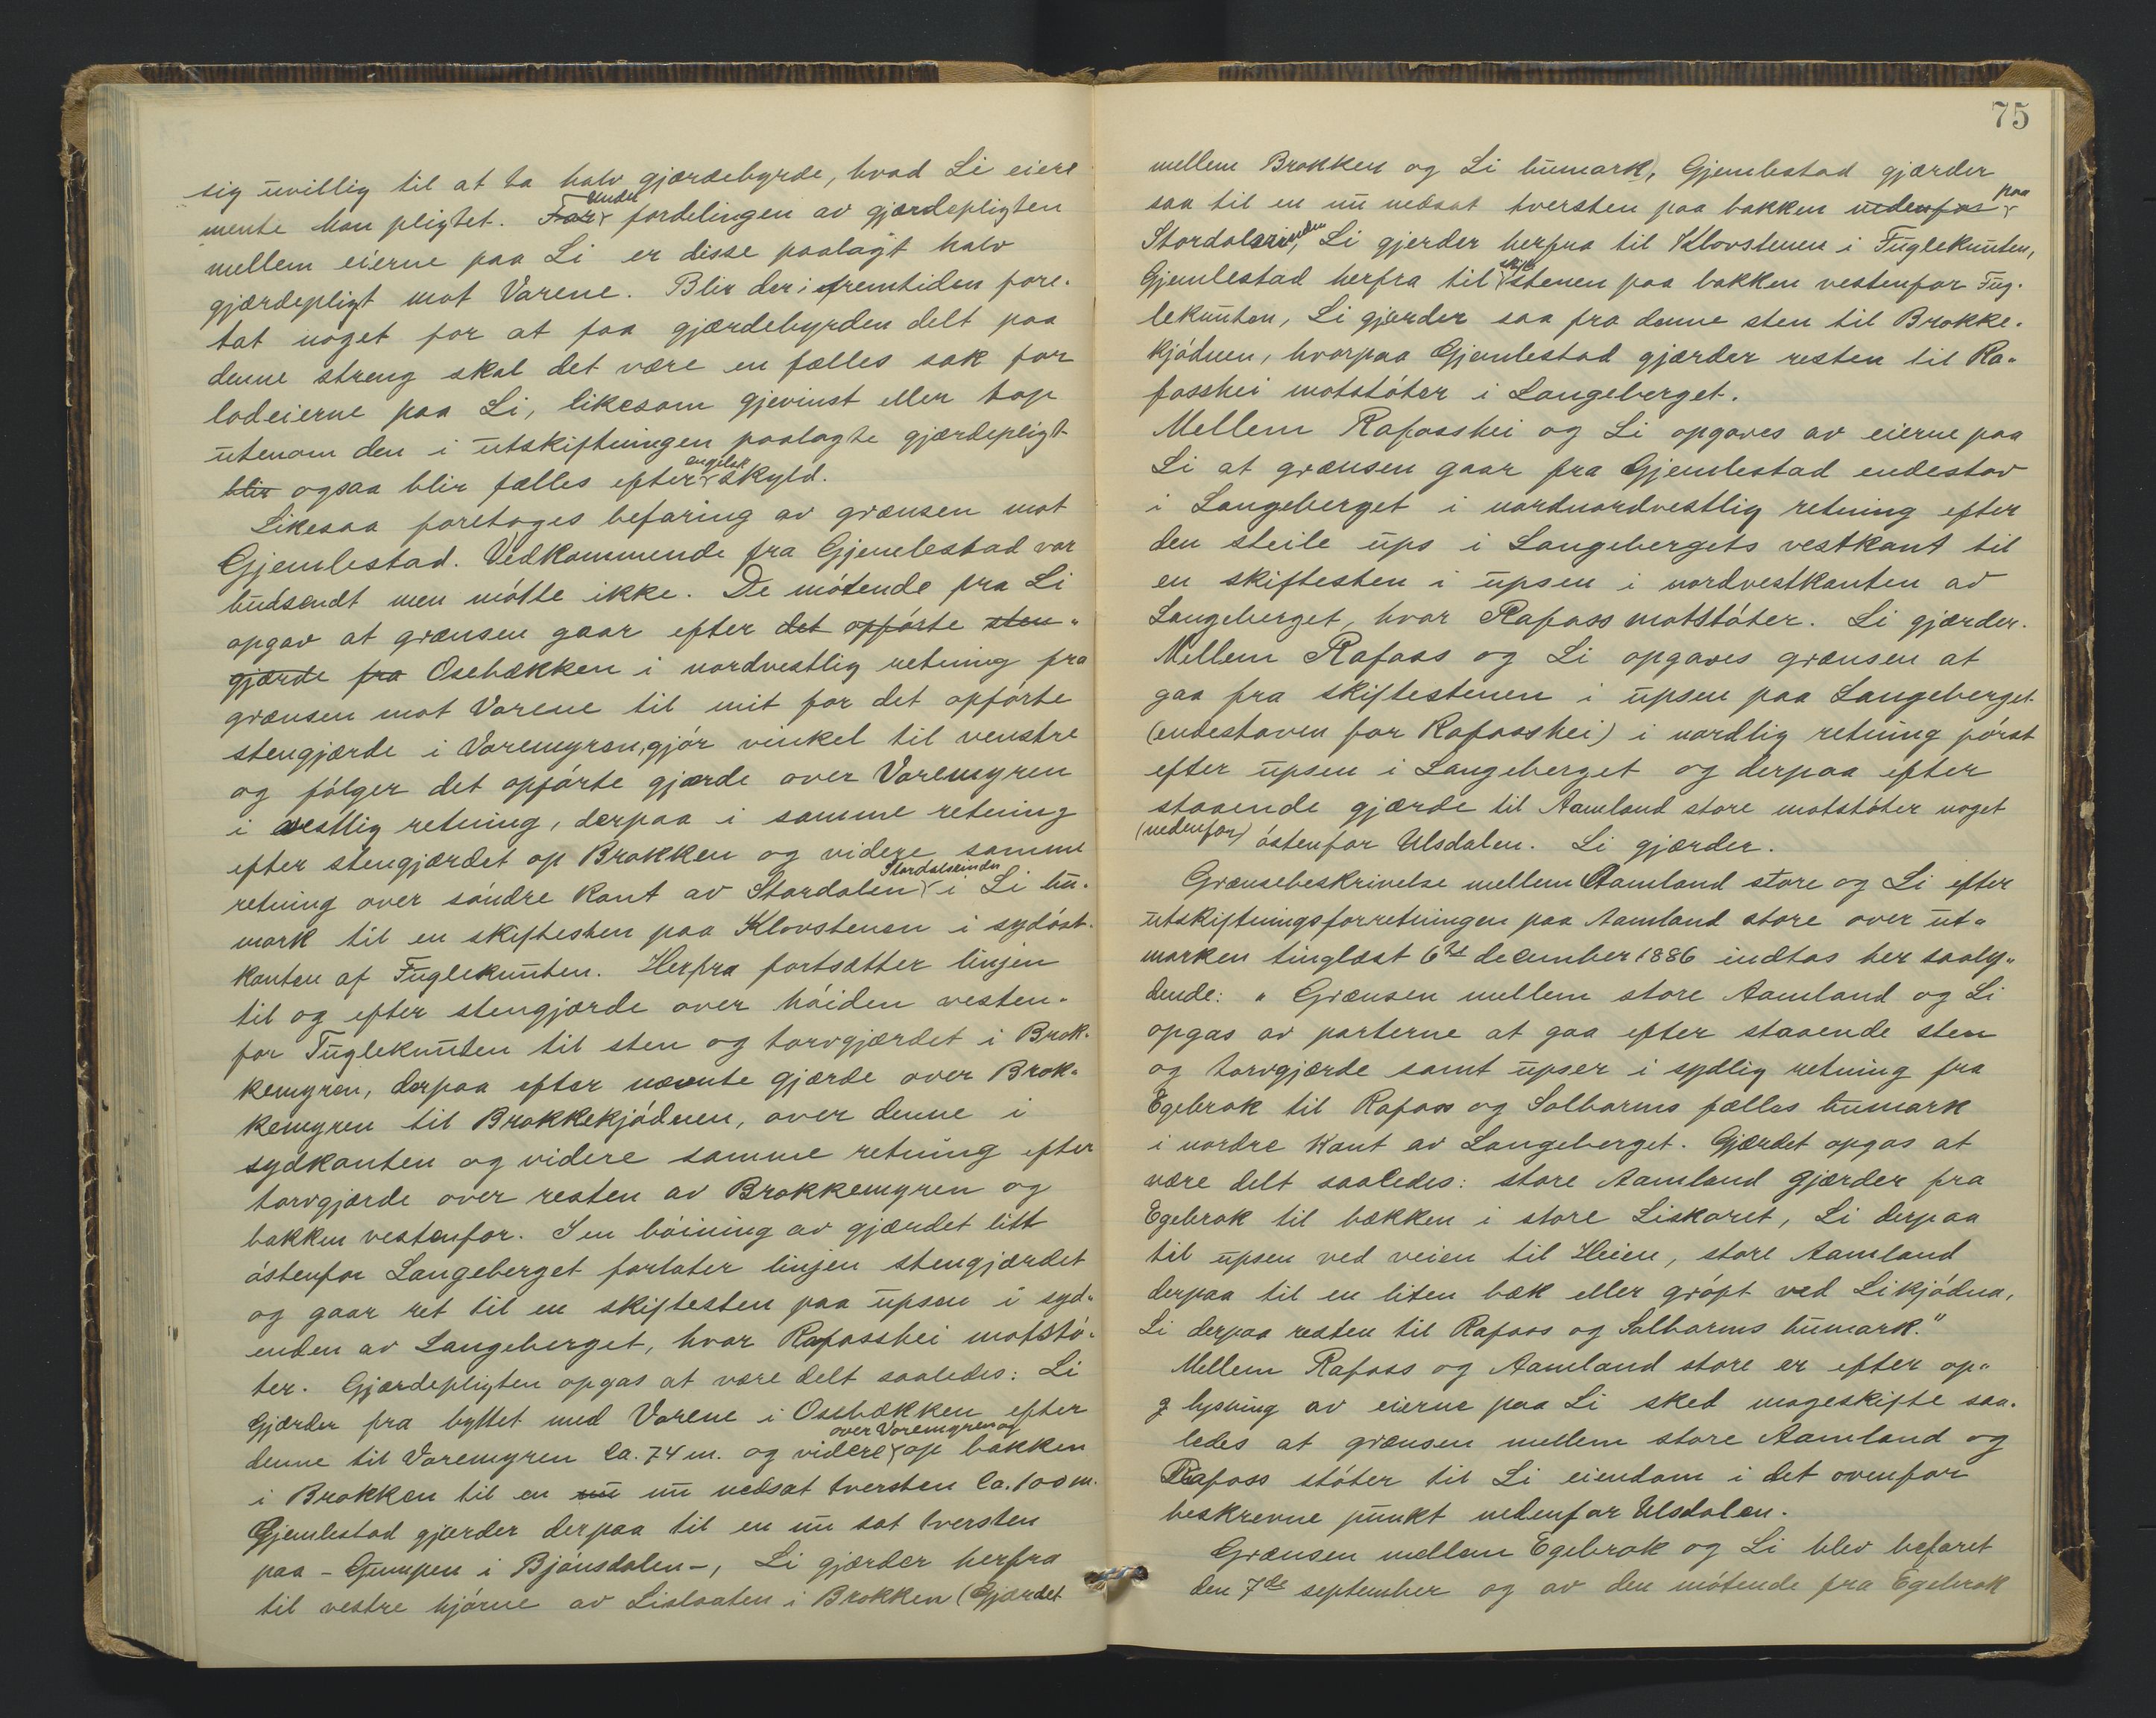 sig uvillig til at ta halv gjærdebyrde, hvad Li eiere
mente han pligtet. For Under fordelingen av gjærdepligten
mellem eierne paa Li er disse paalagt halv
gjærdepligt mot Varene. Blir der i fremtiden fore-
tat noget for at faa gjærdebyrden delt paa
denne streng skal det være en fælles sak for
lodeierne paa Li, likesom gjevinst eller tap
utenom den i utskiftningen paalagte gjærdepligt
blir ogsaa blir fælles efter engelsk skyld.
Likesaa foretages befaring av grænsen mot
Gjemlestad. Vedkommende fra Gjemlestad var
budsendt men møtte ikke. De møtende fra Li
opgav at grænsen gaar efter det opførte sten-
gjærde fra Osebækken i nordvestlig retning fra
grænsen mot Varene til mit for det opførte
stengjærde i Varemyren, gjør vinkel til venstre
og følger det opførte gjærde over Varemyren
i vestlig retning, derpaa i samme retning
efter stengjærdet op Brokken og videre samme
retning over søndre kant av Stordalen Stordalseinden i Li hu-
mark til en skiftesten paa Klovstenen i sydøst-
kanten af Fugleknuten. Herfra fortsætter linjen
til og efter stengjærde over høiden vesten-
for Fugleknuten til sten og torvgjærdet i Brok-
kemyren, derpaa efter nævnte gjærde over Brok-
kemyren til Brokkekjødnen, over denne i
sydkanten og videre samme retning efter
torvgjærde over resten av Brokkemyren og
bakken vestenfor. I en bøining av gjærdet litt
østenfor Langeberget forlater linjen stengjærdet
og gaar ret til en skiftesten paa upsen i syd-
enden av Langeberget, hvor Rafosshei motstø-
ter. Gjærdepligten opgas at være delt saaledes: Li
gjærder fra byttet med Varene i Osebækken efter
denne til Varemyren ca. 74 m. og videre over Varemyren og op bakken
i Brokken til en nu nu nedsat tversten ca. 100 m.
Gjemlestad gjærder derpaa til en nu sat tversten
paa - Gumpen i Bjønsdalen -, Li gjærder herfra
til vestre hjørne av Lislaaten i Brokken (Gjærdet
75
mellem Brokken og Li humark, Gjemlestad gjærder
saa til en nu nedsat tversten paa bakken nedenfor paa
Stordalseinden, Li gjerder herfra til Klovstenen i Fugleknuten,
Gjemlestad herfra til skiftestenen paa bakken vestenfor Fug-
leknuten, Li gjærder saa fra denne sten til Brokke-
kjødnen, hvorpaa Gjemlestad gjærder resten til Ra-
fosshei motstøter i Langeberget.
Mellem Rafosshei og Li opgaves av eierne paa
Li at grænsen gaar fra Gjemlestad endestav
i Langeberget i nordnordvestlig retning efter
den steile ups i Langebergets vestkant til
en skiftesten i upsen i nordvestkanten av
Langeberget, hvor Rafoss motstøter. Li gjærder.
Mellem Rafoss og Li opgaves grænsen at
gaa fra skiftestenen i upsen paa Langeberget
(endestaven for Rafosshei) i nordlig retning først
efter upsen i Langeberget og derpaa efter
staaende gjærde til Aamland store motstøter noget
(nedenfor) østenfor Ulsdalen. Li gjærder.
Grænsebeskrivelse mellem Aamland store og Li efter
utskiftningsforretningen paa Aamland store over ut-
marken tinglæst 6te december 1886 indtas her saaly-
dende: " Grænsen mellem store Aamland og Li
opgas av parterne at gaa efter staaende sten
og torvgjærde samt upser i sydlig retning fra
Egebrok til Rafoss og Salbarms fælles humark
i nordre kant av Langeberget. Gjærdet opgas at
være delt saaledes: store Aamland gjærder fra
Egebrok til bækken i store Liskaret, Li derpaa
til upsen ved veien til Heien, store Aamland
derpaa til en liten bæk eller grøft ved Likjødna,
Li derpaa resten til Rafoss og Salbarms humark."
Mellem Rafoss og Aamland store er efter op-
lysning av eierne paa Li sked mageskifte saa-
ledes at grænsen mellem store Aamland og
Rafoss støter til Li eiendom i det ovenfor
beskrevne punkt nedenfor Ulsdalen.
Grænsen mellem Egebrok og Li blev befaret
den 7de september og av den møtende fra Egebrok